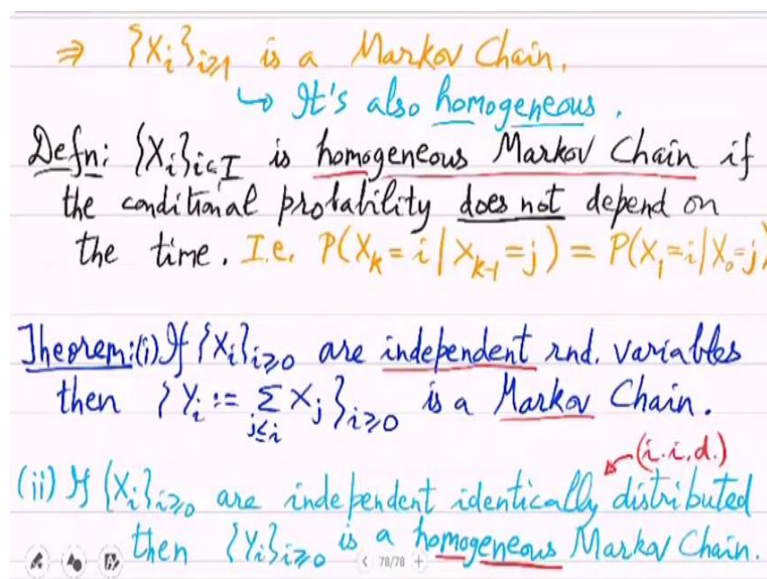 ⇒ {Xᵢ}ᵢ≥₁ is a Markov Chain.
↳ It's also homogeneous.
Defn: {Xᵢ}ᵢ∈I is homogeneous Markov Chain if
the conditional probability does not depend on
the time. I.e. P(Xₖ = i | Xₖ₋₁ = j) = P(X₁ = i | X₀ = j)
Theorem: (i) If {Xᵢ}ᵢ≥₀ are independent rnd. variables
then {Yᵢ := Σ_{j≤i} Xⱼ}ᵢ≥₀ is a Markov Chain.
(i.i.d.)
(ii) If {Xᵢ}ᵢ≥₀ are independent identically distributed
then {Yᵢ}ᵢ≥₀ is a homogeneous Markov Chain.
< 78/78 +